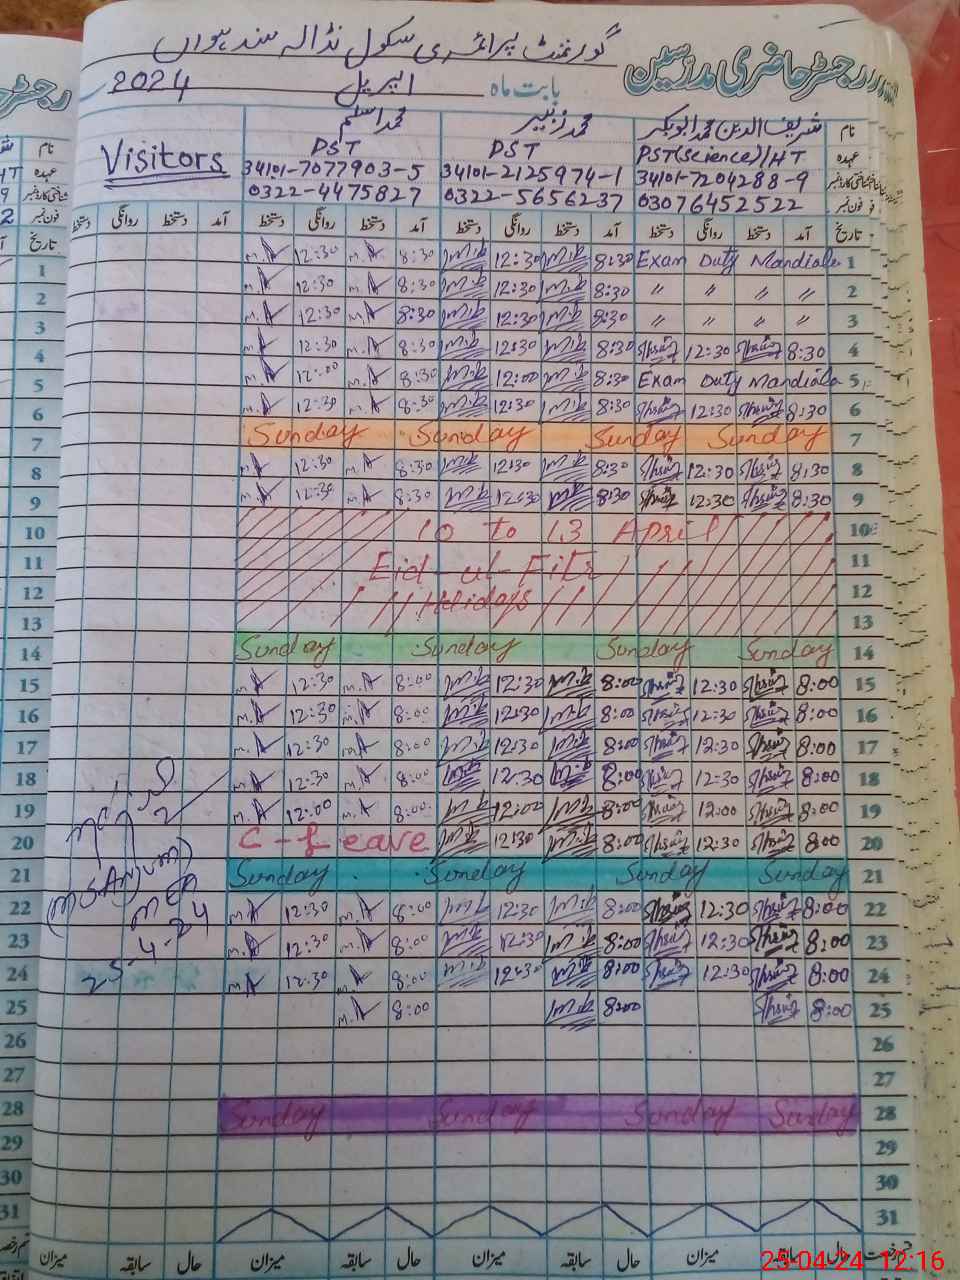 رجسٹر حاضری مدرسین
گورنمنٹ پرائمری سکول نڈالہ سندھواں
بابت ماہ اپریل 2024
نام شریف الدین محمد ابوبکر محمد زبیر محمد اسلم
عہدہ PST(Science)/HT PST PST Visitors
شناختی کارڈ نمبر 34101-7204288-9 34101-2125974-1 34101-7077903-5
فون نمبر 03076452522 0322-5656237 0322-4475827
تاریخ آمد دستخط روانگی دستخط آمد دستخط روانگی دستخط آمد دستخط روانگی دستخط آمد روانگی دستخط دستخط
M.A 12:30 M.A 8:30 M.Z 12:30 M.Z 8:30 Exam Duty Mandiala 1
M.A 12:30 M.A 8:30 M.Z 12:30 M.Z 8:30 〃 〃 〃 〃 2
M.A 12:30 M.A 8:30 M.Z 12:30 M.Z 8:30 〃 〃 〃 〃 3
M.A 12:30 M.A 8:30 M.Z 12:30 M.Z 8:30 12:30 8:30 4
M.A 12:00 M.A 8:30 M.Z 12:00 M.Z 8:30 Exam Duty Mandiala 5
M.A 12:30 M.A 8:30 M.Z 12:30 M.Z 8:30 12:30 8:30 6
Sunday Sunday Sunday Sunday 7
M.A 12:30 M.A 8:30 M.Z 12:30 M.Z 8:30 12:30 8:30 8
M.A 12:30 M.A 8:30 M.Z 12:30 M.Z 8:30 12:30 8:30 9
10 to 13 April 10
Eid-ul-Fitr 11
Holidays 12
13
Sunday Sunday Sunday Sunday 14
M.A 12:30 M.A 8:00 M.Z 12:30 M.Z 8:00 12:30 8:00 15
M.A 12:30 M.A 8:00 M.Z 12:30 M.Z 8:00 12:30 8:00 16
M.A 12:30 M.A 8:00 M.Z 12:30 M.Z 8:00 12:30 8:00 17
M.A 12:30 M.A 8:00 M.Z 12:30 M.Z 8:00 12:30 8:00 18
M.A 12:00 M.A 8:00 M.Z 12:00 M.Z 8:00 12:00 8:00 19
C-Leave M.Z 12:30 M.Z 8:00 12:30 8:00 20
Sunday Sunday Sunday Sunday 21
M.A 12:30 M.A 8:00 M.Z 12:30 M.Z 8:00 12:30 8:00 22
M.A 12:30 M.A 8:00 M.Z 12:30 M.Z 8:00 12:30 8:00 23
M.A 12:30 M.A 8:00 M.Z 12:30 M.Z 8:00 12:30 8:00 24
M.A 8:00 M.Z 8:00 8:00 25
MEA
25-4-24
26
27
Sunday Sunday Sunday Sunday 28
29
30
31
حال سابقہ میزان حال سابقہ میزان حال سابقہ میزان حال سابقہ میزان
25-04-24 12:16